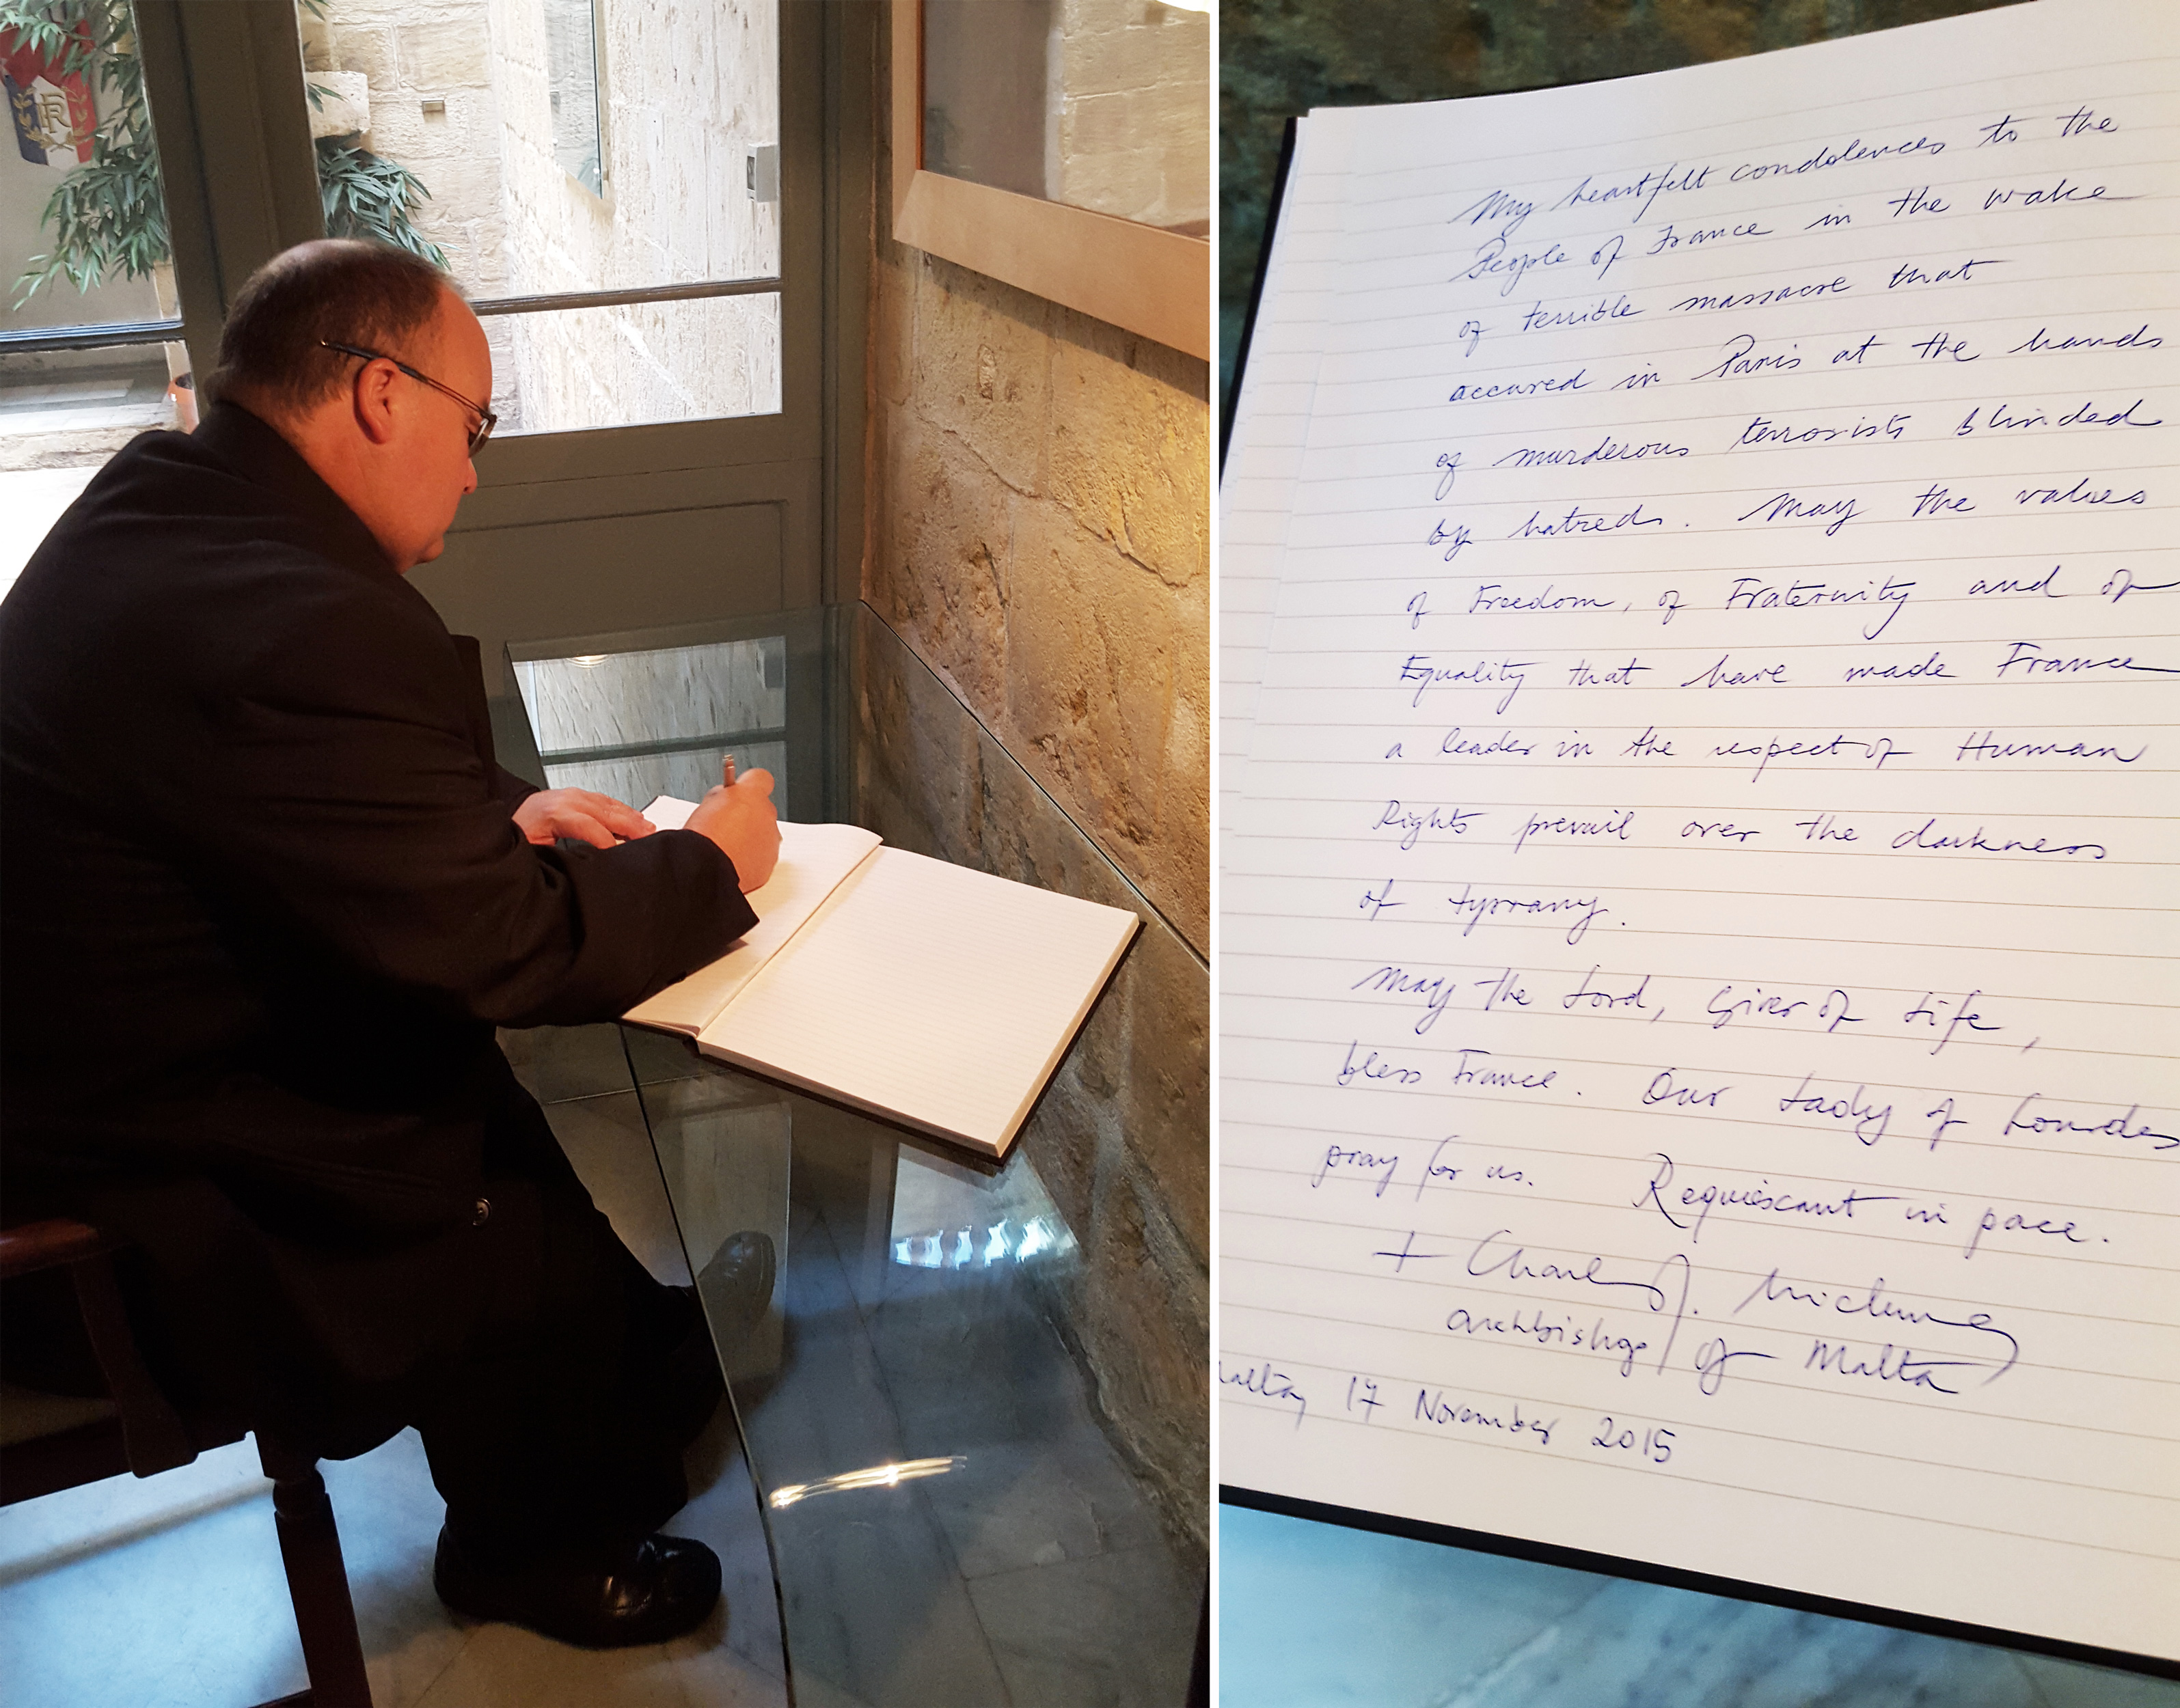 RF
My heartfelt condolences to the
People of France in the wake
of terrible massacre that
occured in Paris at the hands
of murderous terrorists blinded
by hatred. May the values
of Freedom, of Fraternity and of
Equality that have made France
a leader in the respect of Human
Rights prevail over the darkness
of tyrrany.
May the Lord, Giver of Life,
bless France. Our Lady of Lourdes
pray for us. Requiescant in pace.
+ Charles J. Scicluna
Archbishop of Malta
17 November 2015